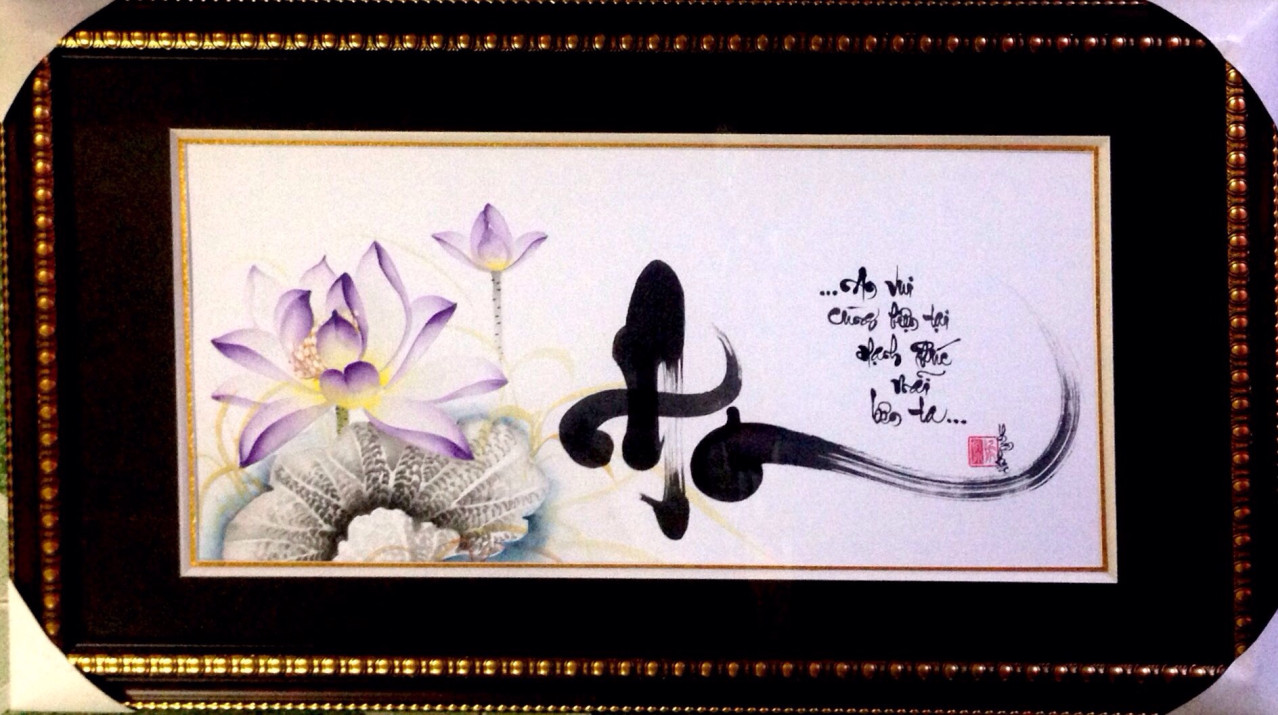 An
...An vui
Cùng hiện tại
Hạnh Phúc
mãi
bên ta...